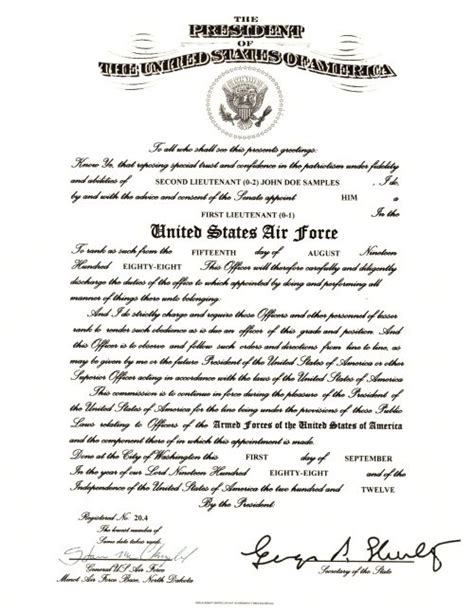 THE
PRESIDENT
OF
THE UNITED STATES OF AMERICA
To all who shall see this presents greetings:
Know Ye, that reposing special trust and confidence in the patriotism under fidelity
and abilities of SECOND LIEUTENANT (0-2) JOHN DOE SAMPLES , I do,
by and with the advice and consent of the Senate appoint HIM a
FIRST LIEUTENANT (0-1) In the
United States Air Force
To rank as such from the FIFTEENTH day of AUGUST Nineteen
Hundred EIGHTY-EIGHT This Officer will therefore carefully and diligently
discharge the duties of the office to which appointed by doing and performing all
manner of things there unto belonging:
And I do strictly charge and require those Officers and other personnel of lesser
rank to render such obedience as is due an officer of this grade and position. And
this Officer is to observe and follow such orders and directions from line to line, as
may be given by me or the future President of the United States of America or other
Superior Officer acting in accordance with the laws of the United States of America
This commission is to continue in force during the pleasure of the President of
the United States of America for the line being under the provisions of those Public
Laws relating to Officers of the Armed Forces of the United States of America
and the component there of in which this appointment is made.
Done at the City of Washington this FIRST day of SEPTEMBER
In the year of our Lord Nineteen Hundred EIGHTY-EIGHT and of the
Independence of the United States of America the two hundred and TWELVE
By the President:
Registered No 20.4
The lowest number of
Same date takes rank.
General US Air Force
Minot Air Force Base, North Dakota
Secretary of the State